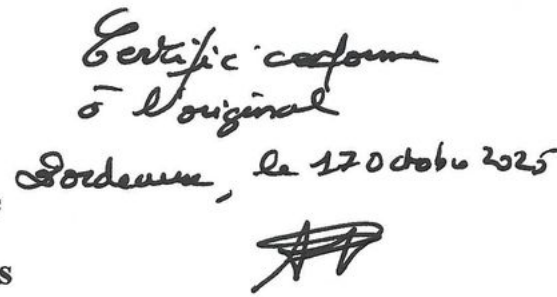 Certifié conforme
à l'original
Bordeaux, le 17 Octobre 2025
s